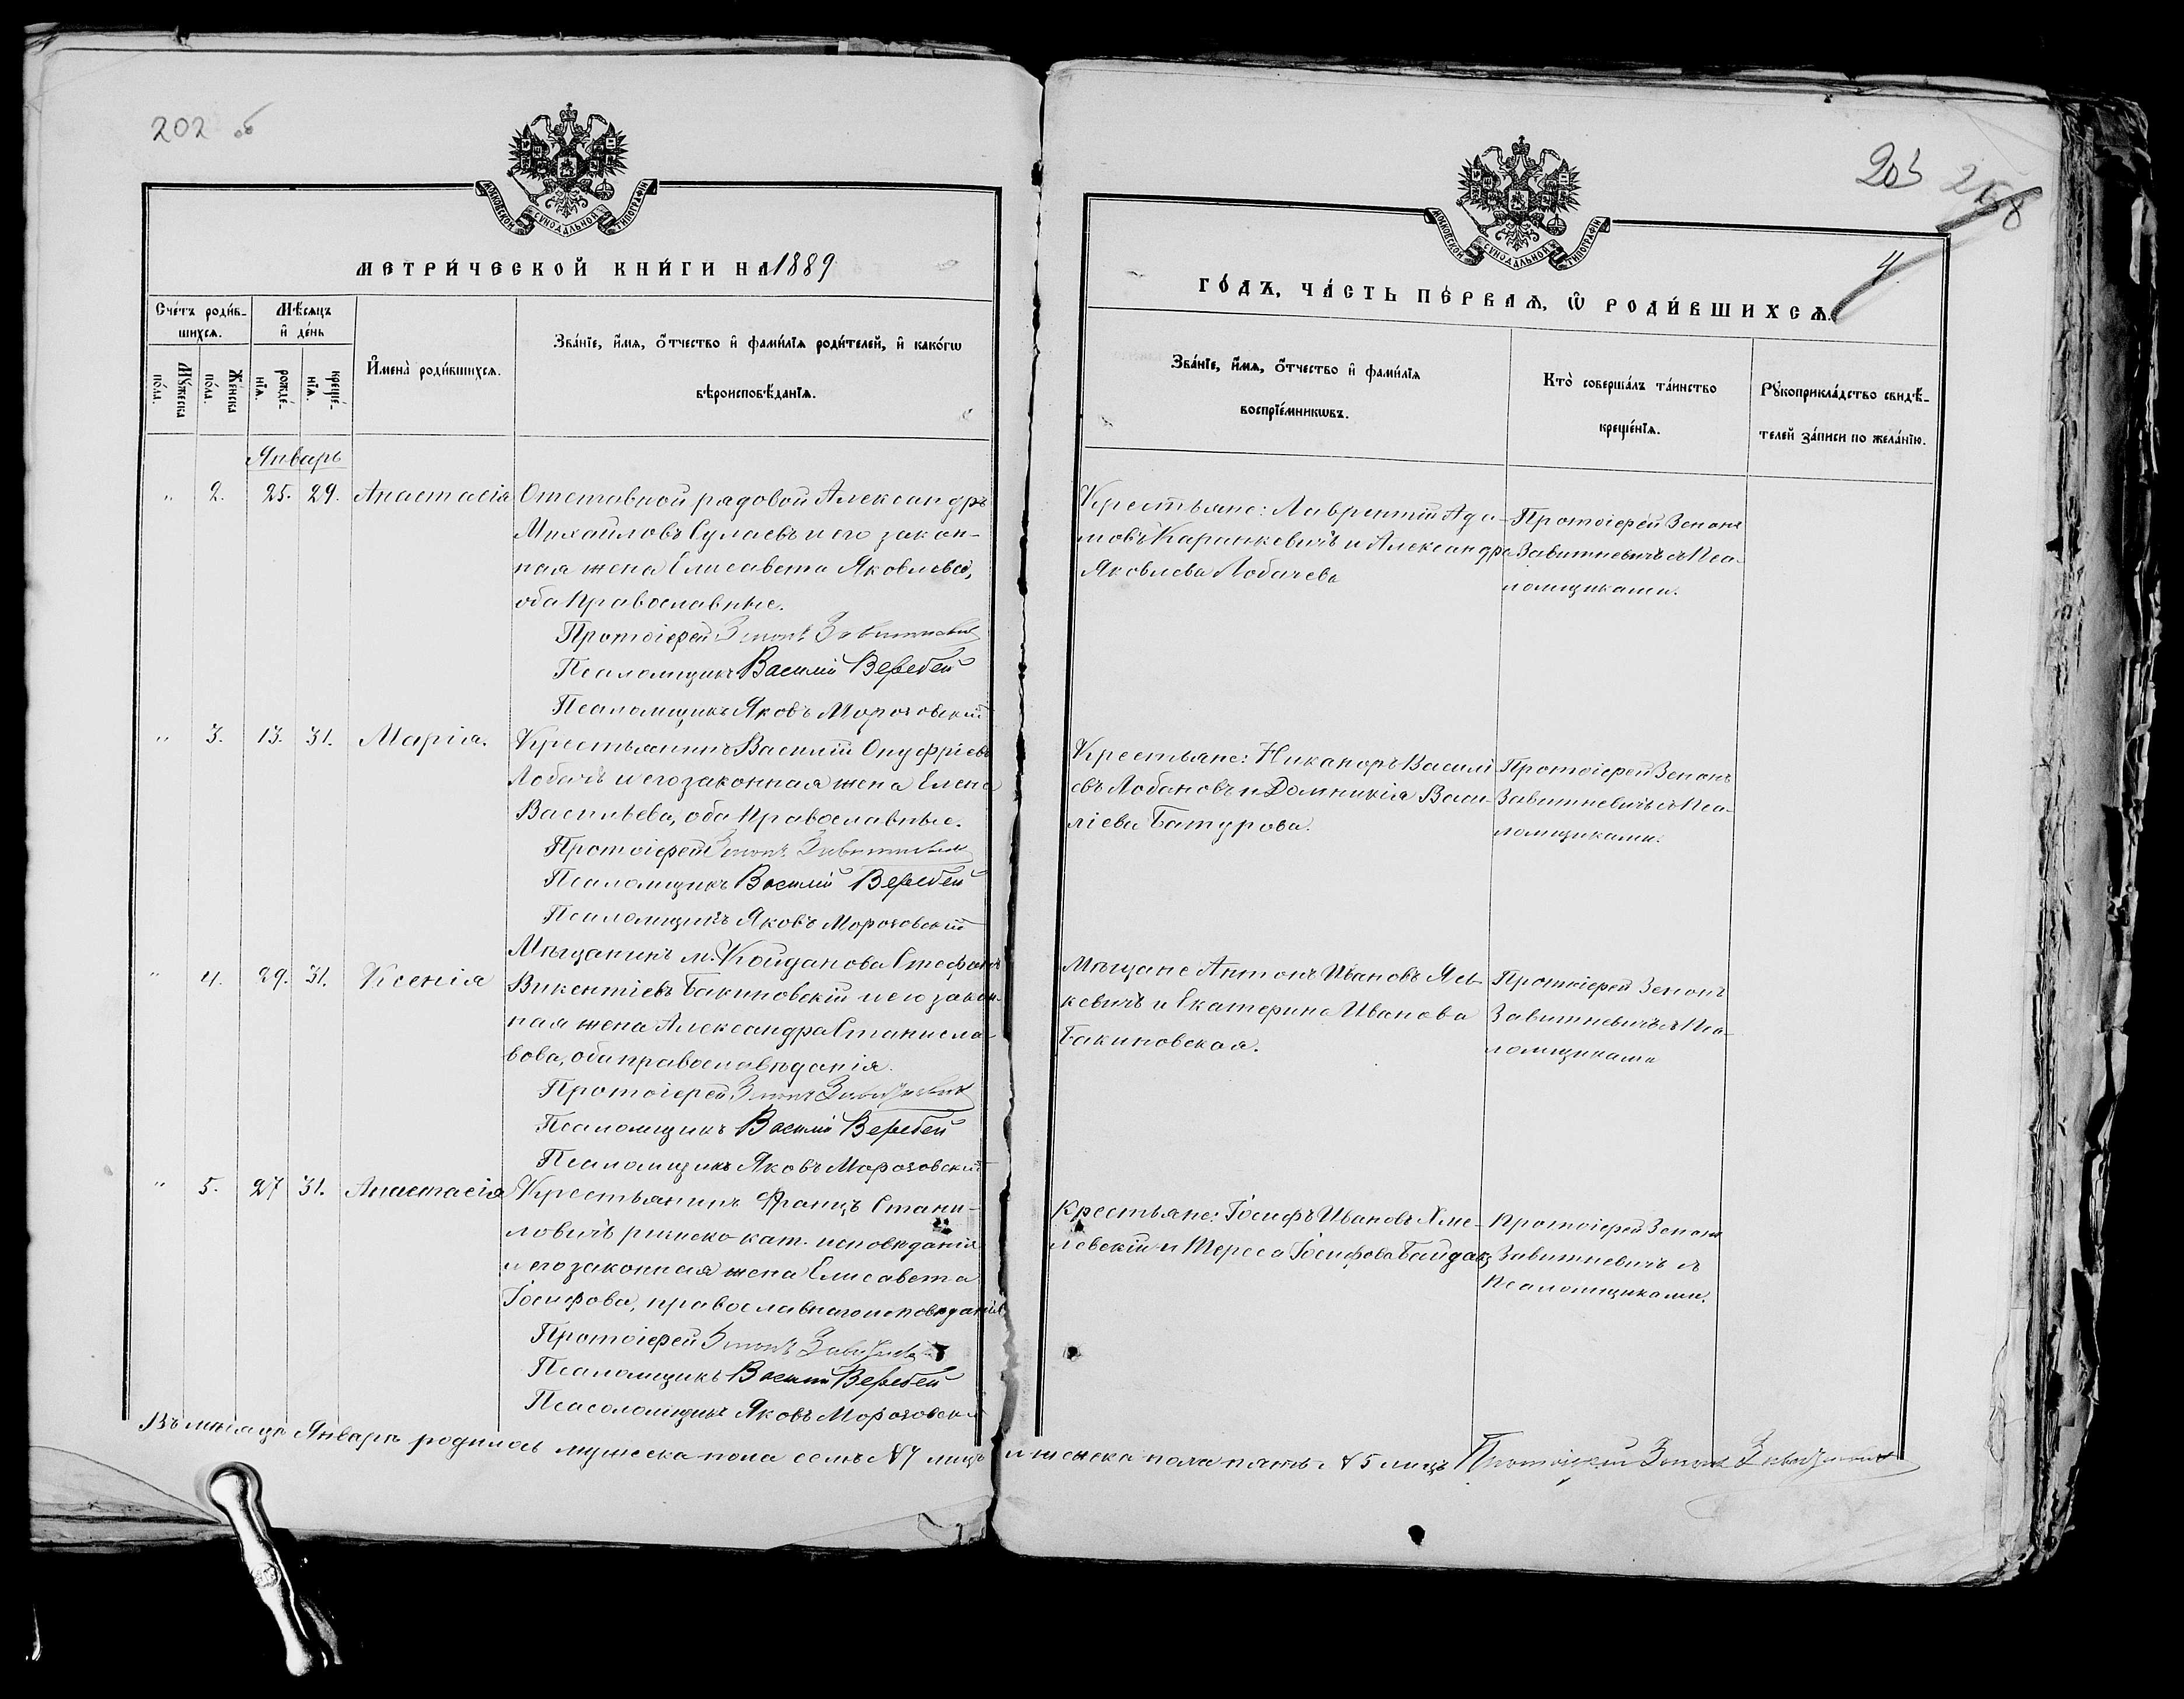 202 об
МОСКОВСКОЙ СУНОДАЛЬНОЙ ТИПОГРАФІИ
МЕТРИ́ЧЕСКОЙ КНИ́ГИ НА 1889
Сче́тъ роди́в-
шихсѧ.
Мѣ́сѧцъ
и҆ де́нь
Мꙋ́жеска
по́ла.
Же́нска
по́ла.
рожде́-
нїѧ.
креще́-
нїѧ.
И҆мена̀ роди́вшихсѧ.
Зва́нїе, и҆́мѧ, ѻ҆́тчество и҆ фамилїѧ роди́телей, и҆ како́гѡ
вѣроисповѣ́данїѧ.
Январь
" 2. 25. 29. Анастасія
Отставной рядовой Александръ
Михайловъ Сулаевъ и его закон-
ная жена Елисавета Яковлева,
оба Православные.
Протоіерей Зенонъ Завитневичъ
Псаломщикъ Василій Веребей
Псаломщикъ Яковъ Морозовскій
" 3. 13. 31. Марія.
Крестьянинъ Василій Онуфріевъ
Лобачъ и его законная жена Елена
Васильева, оба Православные.
Протоіерей Зенонъ Завитневичъ
Псаломщикъ Василій Веребей
Псаломщикъ Яковъ Морозовскій
" 4. 29. 31. Ксенія
Мѣщанинъ м. Койданова Стефанъ
Викентіевъ Бакиновскій и его закон-
ная жена Александра Станисла-
вова,
Протоіерей Зенонъ Завитневичъ
Псаломщикъ Василій Веребей
Псаломщикъ Яковъ Морозовскій
" 5. 27 31. Анастасія
Крестьянинъ Францъ Стани-
ловичъ римско кат. исповѣданія
и его законная жена Елисавета
Іосифова, православнаго исповѣданія
Протоіерей Зенонъ Завитневичъ
Псаломщикъ Василій Веребей
Псасоломщикъ Яковъ Морозовскій
Въ мѣсяцѣ Январѣ родилось мужеска пола семь № 7 лицъ
203 258
4
МОСКОВСКОЙ СУНОДАЛЬНОЙ ТИПОГРАФІИ
ГО́ДЪ, ЧА́СТЬ ПЕ́РВАѦ, Ѡ҆ РОДИ́ВШИХСѦ.
Зва́нїе, и҆́мѧ, ѻ҆́тчество и҆ фамилїѧ
воспрїе́мникѡвъ.
Кто̀ соверша́лъ та́инство
креще́нїѧ.
Рꙋкоприкла́дство свидѣ́-
телей за́писи по жела́нїю.
Крестьяне: Лаврентій Ада-
мовъ Каранкевичъ и Александра
Яковлева Лобачева
Протоіерей Зенонъ
Завитневичъ съ Пса-
ломщиками.
Крестьяне: Никаноръ Василі
евъ Лобановъ и Домникія Васи-
ліева Батурова.
Протоіерей Зенонъ
Завитневичъ съ Пса-
ломщиками.
Мѣщане Антонъ Ивановъ
кевичъ и Екатерина Иванова
Бакиновская.
Протоіерей Зенонъ
Завитневичъ съ Пса-
ломщиками
Крестьяне: Іосифъ Ивановъ Хме-
левскій и Тереса Іосифова Байдакъ
Протоіерей Зенонъ
Завитневичъ съ
Псаломщиками.
и женска пола пять № 5 лицъ Протоіерей Зенонъ Завитневичъ